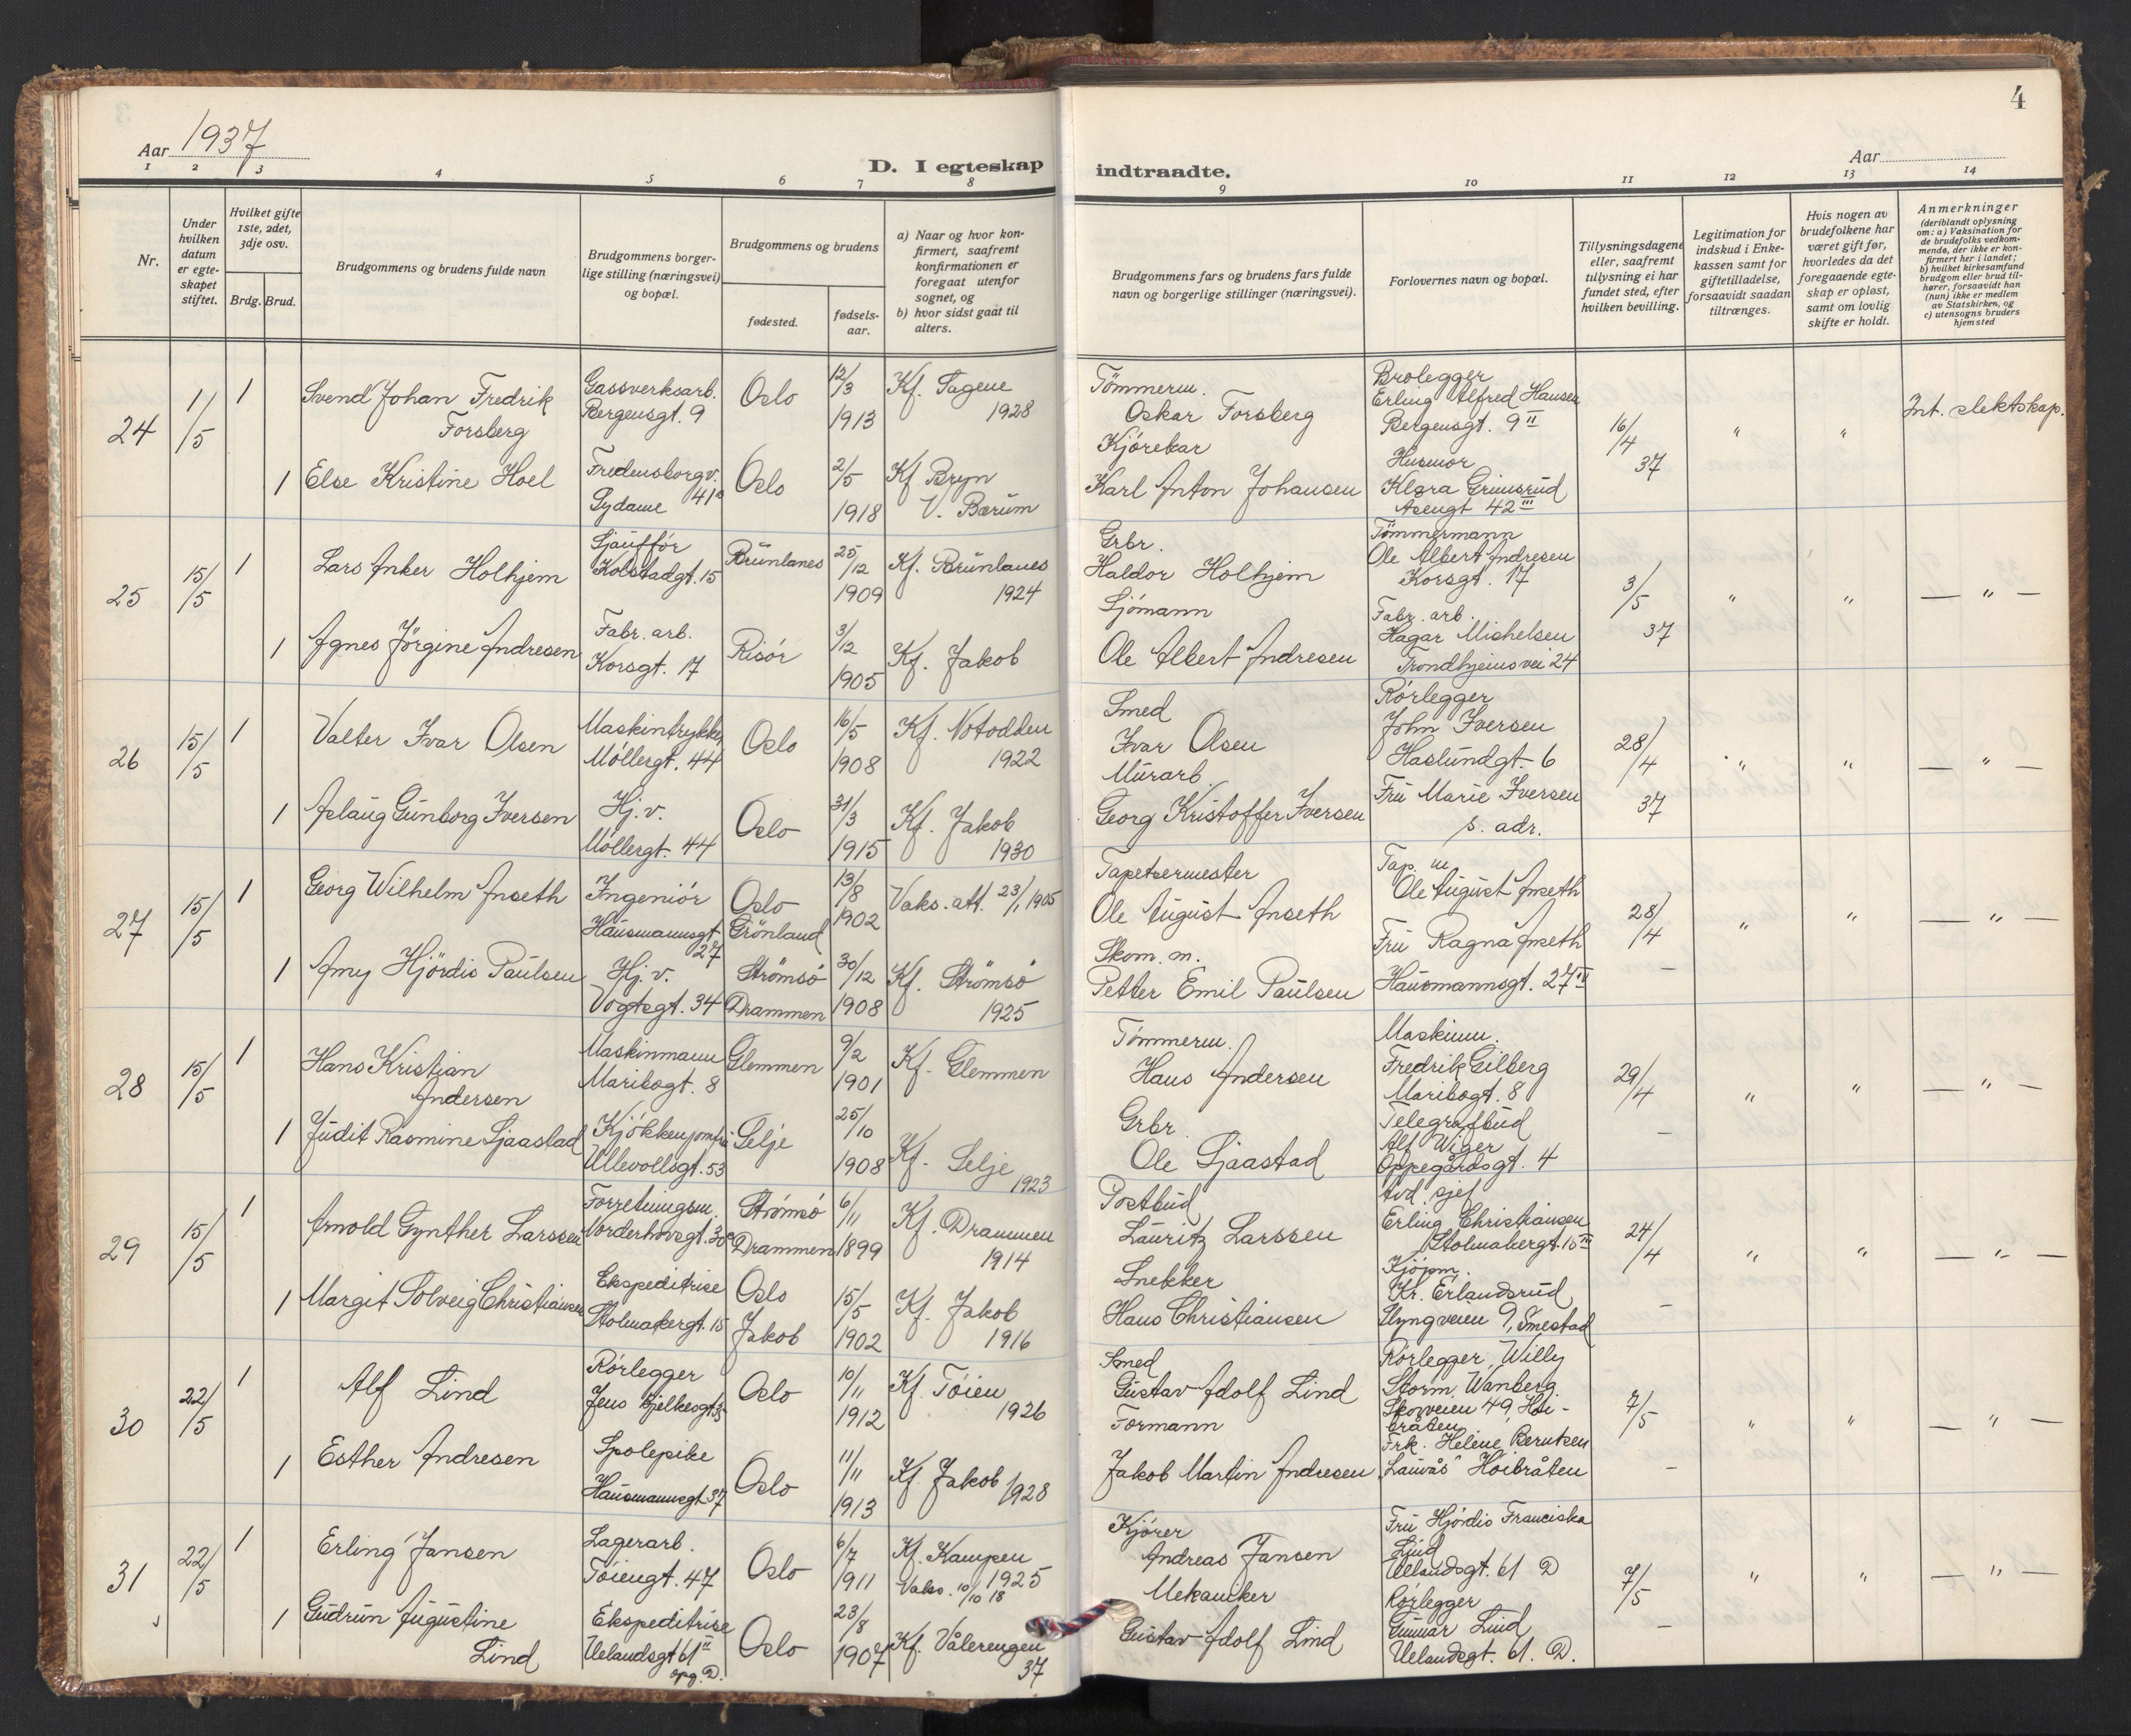 4
Aar 1937
D. I egteskap indtraadte.
Aar
1 2 3 4 5 6 7 8 9 10 11 12 13 14
Nr.
Under hvilken datum er egte-skapet stiftet.
Hvilket gifte 1ste, 2det, 3dje osv.
Brdg. Brud.
Brudgommens og brudens fulde navn
Brudgommens borger-lige stilling (næringsvei) og bopæl.
Brudgommens og brudens
fødested.
fødsels-aar.
a) Naar og hvor kon-firmert, saafremt konfirmationen er foregaat utenfor sognet, og
b) hvor sidst gaat til alters.
Brudgommens fars og brudens fars fulde navn og borgerlige stillinger (næringsvei).
Forlovernes navn og bopæl.
Tillysningsdagene eller, saafremt tillysning ei har fundet sted, efter hvilken bevilling.
Legitimation for indskud i Enke-kassen samt for giftetilladelse, forsaavidt saadan tiltrænges.
Hvis nogen av brudefolkene har været gift før, hvorledes da det foregaaende egte-skap er opløst, samt om lovlig skifte er holdt.
Anmerkninger
(deriblandt oplysning om: a) Vaksination for de brudefolks vedkom-mende, der ikke er kon-firmert her i landet; b) hvilket kirkesamfund brudgom eller brud til-hører, forsaavidt han (hun) ikke er medlem av Statskirken, og c) utensogns bruders hjemsted
24 1/5 1 Svend Johan Fredrik Forsberg
Gassverksarb. Bergensgt. 9
Oslo 12/3 1913 Kf. Sagene 1928
Tømmerm. Oskar Forsberg
Brolegger Erling Alfred Hansen Bergensgt. 9 II
16/4 37 " "
Int. slektskap.
1 Else Kristine Hoel
Fredensborgv. 41a Sydame
Oslo 2/5 1918 Kf Bryn V. Bærum
Kjørekar Karl Anton Johansen
Husmor Klara Grimsrud 42 III
25 15/5 1 Lars Anker Holhjem
Sjauffør Kolstadgt. 15
Brunlanes 25/12 1909 Kf. Brunlanes 1924
Grbr. Haldor Holhjem
Tømmermann Ole Albert Andresen Korsgt. 17
3/5 37 " " — " —
1 Agnes Jörgine Andresen
Fabr. arb. Korsgt. 17
Risør 3/12 1905 Kf. Jakob
Sjömann Ole Albert Andresen
Fabr. arb. Hagar Michelsen Trondhjemsvei 24
26 15/5 1 Valter Ivar Olsen
Maskintrykker Møllergt. 44
Oslo 16/5 1908 Kf. Notodden 1922
Smed Ivar Olsen
Rørlegger John Iversen Haslundgt. 6
28/4 37 " " — " —
1 Aslaug Gunborg Iversen
Hj. v. Møllergt. 44
Oslo 31/3 1915 Kf. Jakob 1930
Murarb. Georg Kristoffer Iversen
Fru Marie Iversen s. adr.
27 15/5 1 Georg Wilhelm Anseth
Ingeniør Hausmannsgt 27
Oslo Grönland 13/8 1902 Vaks. att. 23/1 1905
Tapetsermester Ole August Anseth
Tap. m Ole August Anseth
28/4 — " " — " —
1 Amy Hjördis Paulsen
Hj. v. Vogtsgt. 34
Strömsö Drammen 30/12 1908 Kf. Strömsö 1925
Skom. m. Petter Emil Paulsen
Fru Ragna Anseth Hausmannsgt. 27 II
28 15/5 1 Hans Kristian Andersen
Maskinmann Maribogt. 8
Glemmen 9/2 1901 Kf. Glemmen
Tømmerm. Hans Andersen
Maskinm. Fredrik Gilberg Maribogt. 8
29/4 — " " — " —
1 Judit Rasmine Sjaastad
Kjøkkenjomfru Ullevollsgt. 53
Selje 25/10 1908 Kf. Selje 1923
Grbr. Ole Sjaastad
Telegrafbud Alf Wiger Oppegårdsgt. 4
29 15/5 1 Arnold Gynther Larssen
Forretningsm. Norderhovsgt. 30
Strømsø Drammen 6/11 1899 Kf. Drammen 1914
Postbud Lauritz Larssen
Avd. sjef Erling Christiansen Stolmakergt. 15 III
24/4 — " " — " —
1 Margit Solveig Christiansen
Ekspeditrise Stolmakergt. 15
Oslo Jakob 15/5 1902 Kf. Jakob 1916
Snekker Hans Christiansen
Kjøpm. Kr. Erlandsrud Ulyngveien 9, Smestad
30 22/5 1 Alf Lind
Rørlegger Jens Bjelkesgt 35
Oslo 10/11 1912 Kf. Tøien 1926
Smed Gustav Adolf Lind
Rørlegger, Willy Storm Wanberg. 49, Høi-bråten
7/5 — " " — " —
1 Esther Andresen
Spolepike Hausmannsgt 37
Oslo 11/11 1913 Kf. Jakob 1928
Formann Jakob Martin Andresen
Frk. Helene Berntsen Høibråten
31 22/5 1 Erling Jansen
Lagerarb. Tøiengt. 47
Oslo 6/7 1911 Kf. Kampen 1925 Vaks. 10/10 18
Kjører Andreas Jansen
Fru Hjørdis Franciska Lind Uelandsgt. 61 D
7/5 — " " — " —
1 Gudrun Augustine Lind
Ekspeditrise Uelandsgt 61 II opg. D.
Oslo 23/8 1907 Kf. Vålerengen 37
Mekaniker Gustav Adolf Lind
Rørlegger Gunnar Lind Uelandsgt. 61. D.